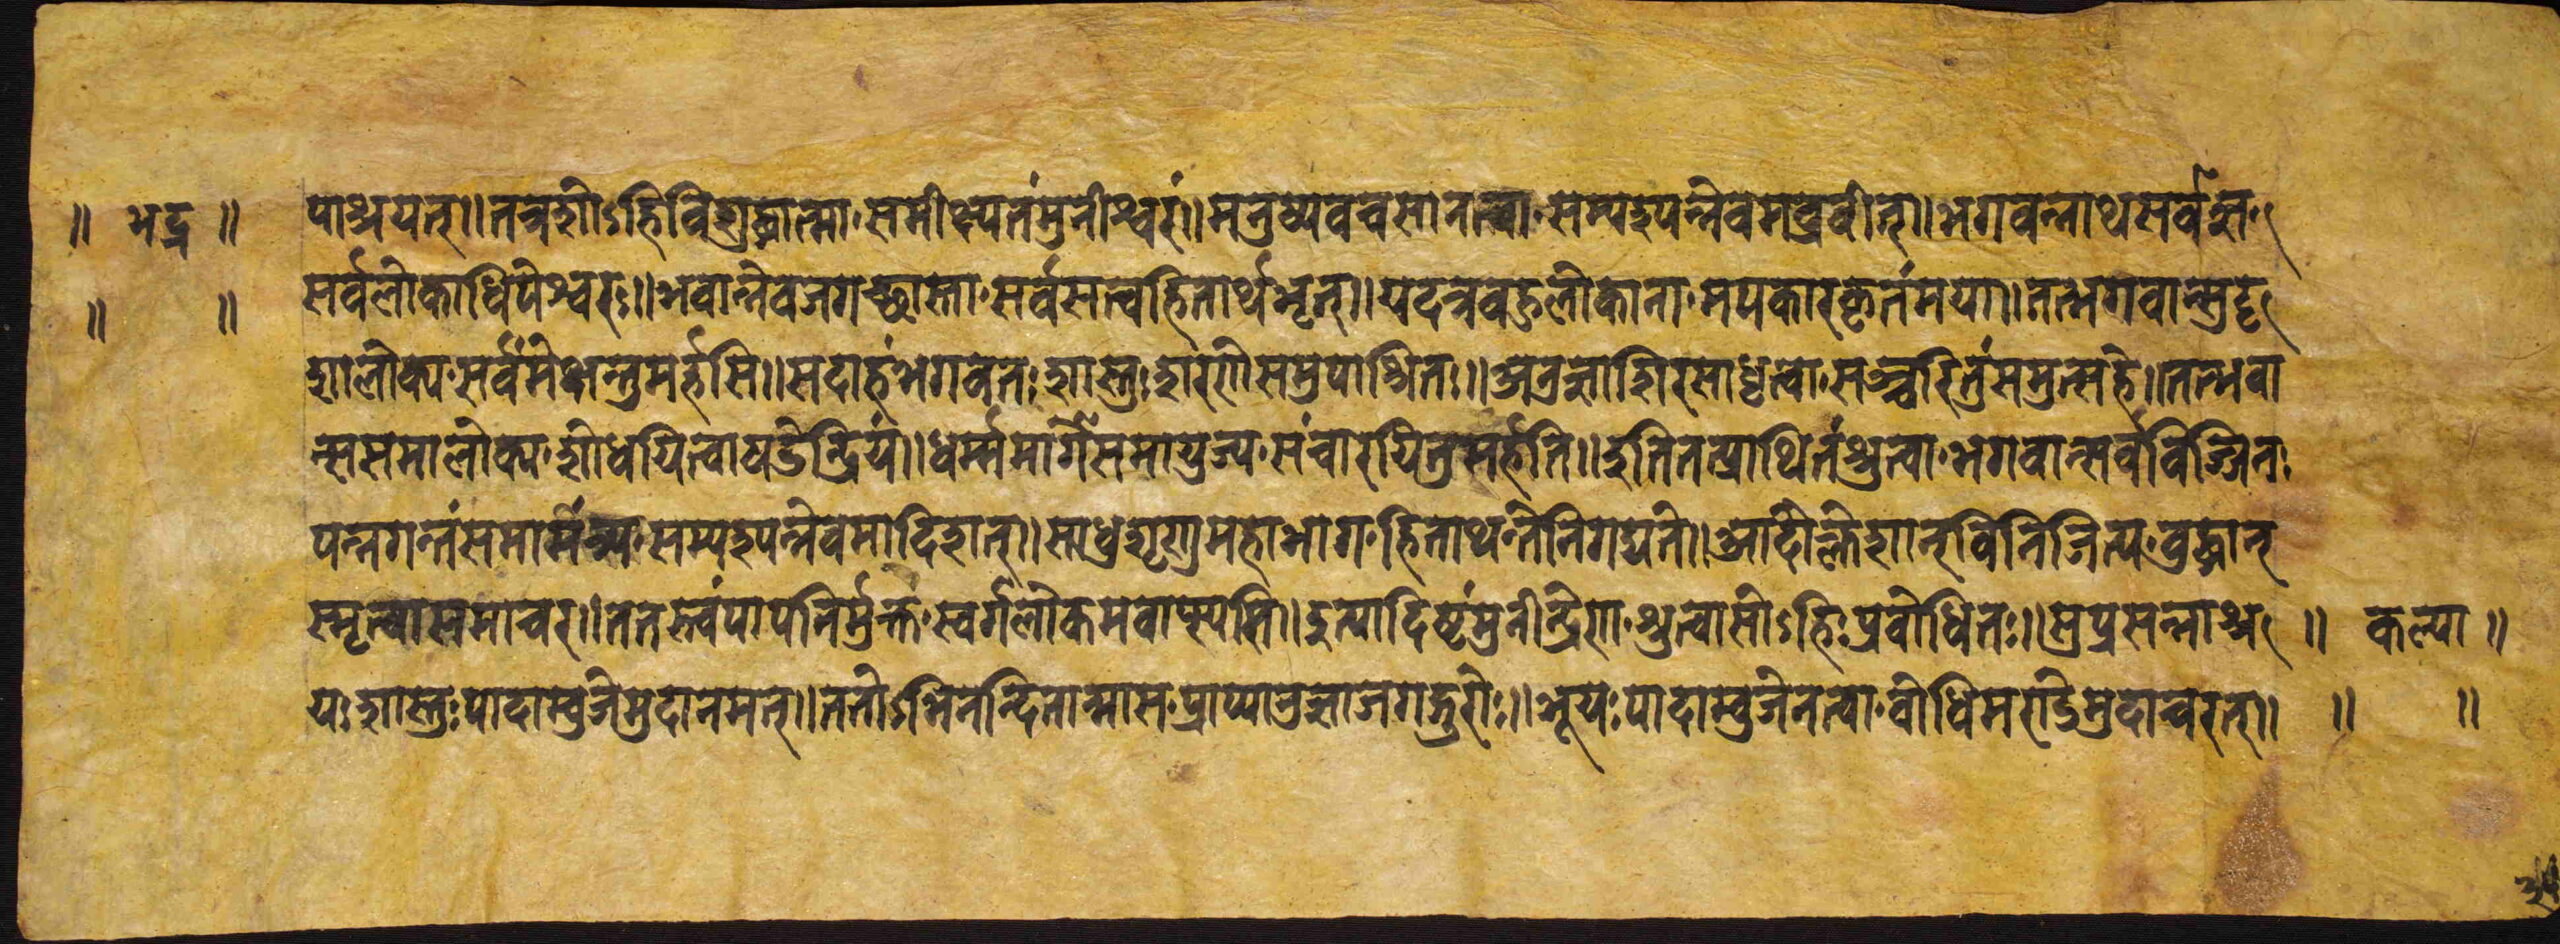 ॥ भद्र ॥ पाश्रयत्॥ तत्रशोऽहिविशुद्धात्मा समीक्ष्यतंमुनीश्वरं॥ मनुष्यवचसानत्वा सम्पश्यन्नेवमब्रवीत्॥ भगवन्नाथसर्वज्ञ
॥ ॥ सर्वलोकाधिपेश्वरः॥ भवान्नेवजगच्छास्ता सर्वसत्वहितार्थभृत्॥ यदत्रवहुलोकाना मपकारकृतंमया॥ तद्भगवान्मुदृ
शालोक्य सर्वंमेक्षन्तुमर्हसि॥ सदाहंभगवतः शास्तुः शरणेसमुपाश्रितः॥ अनुज्ञाशिरसाधृत्वा सञ्चरितुंसमुत्सहे॥ तद्भवा
न्ससमालोक्य शोधयित्वाषडेन्द्रियं॥ धर्म्ममार्गेसमायुज्य संचारयितुमर्हति॥ इतितत्प्रार्थितंश्रुत्वा भगवान्सर्वविज्जिनः
पन्नगन्तंसमामंत्र्य सम्पश्यन्नेवमादिशत्॥ साधुशृणुमहाभाग हितार्थंतेनिगद्यते॥ आदौक्लेशान्विनिर्जित्य वुद्धान्
स्मृत्वासमाचर॥ ततस्त्वंपापनिर्मुक्तः स्वर्गलोकमवाप्स्यसि॥ इत्यादिष्टंमुनीन्द्रेण श्रुत्वासोऽहिः प्रवोधितः॥ सुप्रसन्नाश ॥ कल्या ॥
यः शास्तुः पादाम्वुजेमुदानमत्॥ ततोऽभिनन्दितात्मास प्राप्यानुज्ञाजगद्गुरोः॥ भूयः पादाम्वुजेनत्वा वोधिमराडेमुदाचरत्॥ ॥ ॥